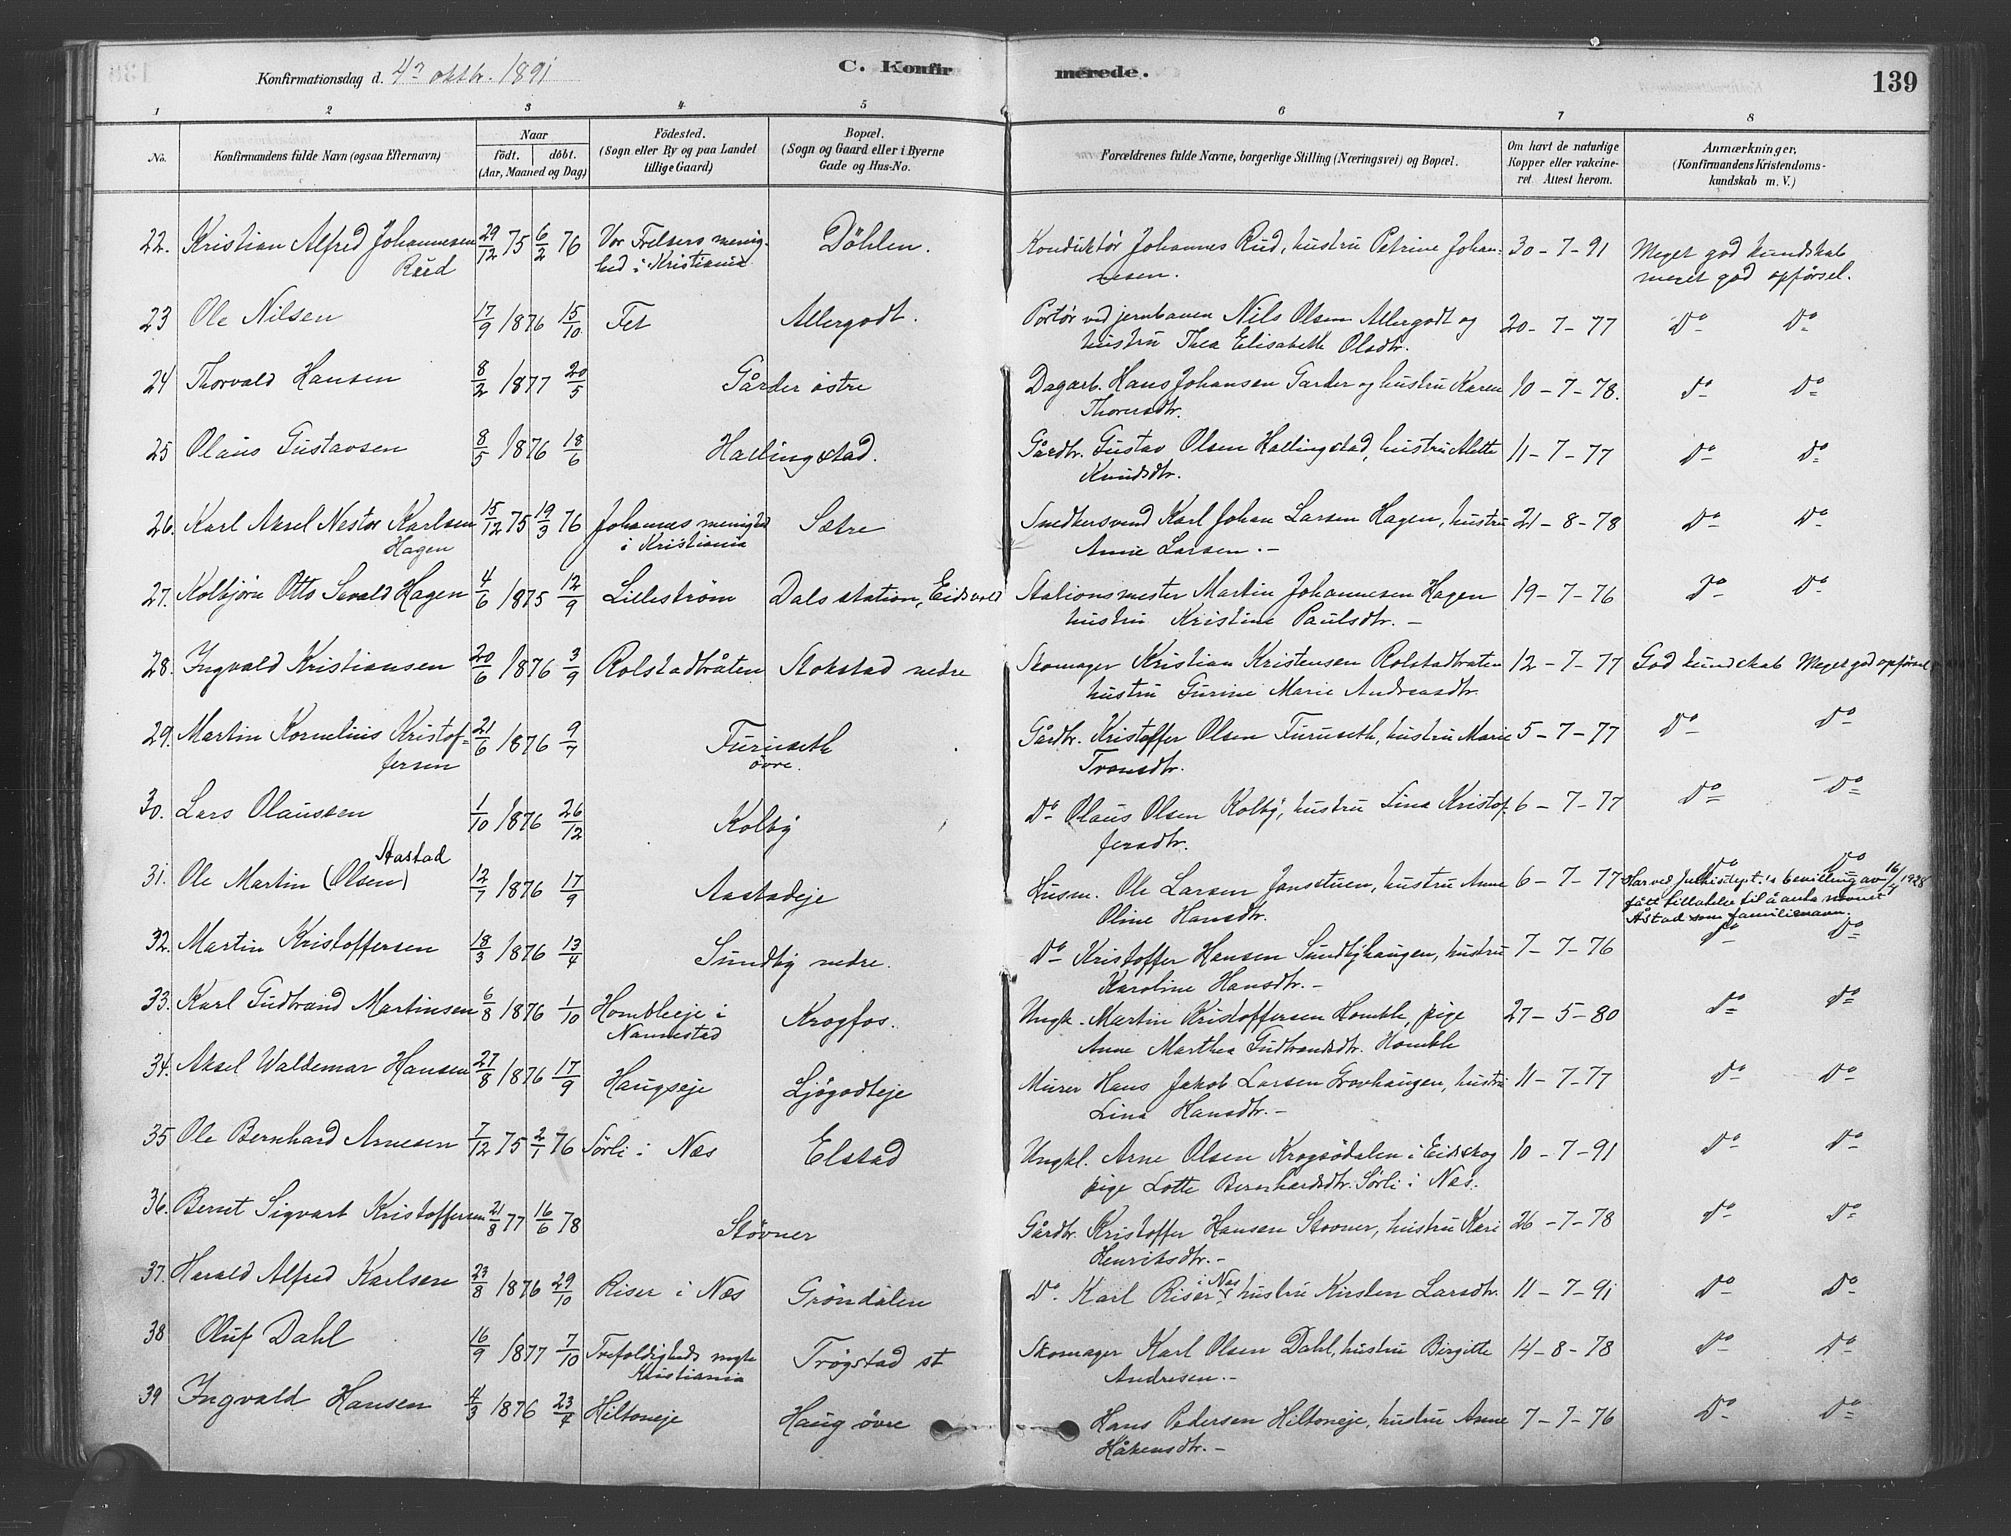 Konfirmationsdag d. 4de oktbr. 1891
C. Konfirmerede.
139
1 2 3 4 5 6 7 8
No.
Konfirmandens fulde Navn (ogsaa Efternavn)
Naar
födt. döbt.
(Aar, Maaned og Dag)
Födested.
(Sogn eller By og paa Landet
tillige Gaard)
Bopæl.
(Sogn og Gaard eller i Byerne
Gade og Hus-No.
Forældrenes fulde Navne, borgerlige Stilling (Næringsvei) og Bopæl.
Om havt de naturlige
Kopper eller vakcine-
ret Attest herom.
Anmærkninger,
(Konfirmandens Kristendoms-
kundskab m. V.)
22. Kristian Alfred Johannesen 29/12 75 6/2 76 Vor Frelsers menig- Döhlen. Konduktør Johannes Rud, hustru Petrine Johan- 30-7-91 Meget god kundskab
Rud hed i Kristiania nesen. meget god opførsel.
23 Ole Nilsen 17/9 1876 15/10 Fet Allergodt. Portør ved jernbanen Nils Olsen Allergodt og 20-7-77 Do Do
hustru Thea Elisabeth Olsdtr.
24 Thorvald Hansen 8/2 1877 20/5 Gårder östre Dagarb. Hans Johansen Garder og hustru Karen 10-7-78. Do Do
Thorersdtr.
25 Olaus Gustavsen 8/5 1876 18/6 Hallingstad. Gårdbr. Gustav Olsen Hallingstad, hustru Mette 11-7-77 Do Do
Knudsdtr.
26. Karl Aksel Nestor Karlsen 15/12 75 19/3 76 Johannes menighed Sætre Snedkersvend Karl Johan Larsen Hagen, hustru 21-8-78 Do Do
Hagen i Kristiania Anne Larsen.-
27. Kolbjørn Otto Sevald Hagen 4/6 1875 12/9 Lillestrøm Dals station, Eidsvold Stationsmester Martin Johannesen Hagen 19-7-76 Do Do
hustru Kristine Paulsdtr.-
28. Ingvald Kristiansen 20/6 1876 3/9 Rolstadbråten Stokstad nedre Skomager Kristian Kristensen Rolstadbraten 12-7-77 God kundskab Meget god opførsel
hustru Gurine Marie Andreasdtr.
29. Martin Kornelius Kristof- 21/6 1876 9/7 Furuseth Gårdbr. Kristoffer Olsen Furuseth, hustru Marie 5-7-77 Do Do
fersen övre. Tronsdtr.
30. Lars Olaussen 1/10 1876 26/12 Kolby Do Olaus Olsen Kolby, hustru Lina Kristof- 6-7-77 Do Do
fersdtr.
Aastad
31. Ole Martin (Olsen) 12/7 1876 17/9 Aastadeje Husm. Ole Larsen Jonsstuen, hustru Anne 6-7-77 Do Do
Oline Hansdtr.
Har ved Justisdept.s bevilling av 16/4 1928
fått tillatelse til å anta navnet
Åstad som familienavn.
32. Martin Kristoffersen 18/3 1876 13/4 Sundby nedre. Do Kristoffer Hansen Sundbyhaugen, hustru 7-7-76 Do Do
Karoline Hansdtr.-
33. Karl Gudbrand Martinsen 6/8 1876 1/10 Hombleeje i Krogfos. Ungk. Martin Kristoffersen Homble, pige 27-5-80 Do Do
Nannestad Anne Marthea Gudbrandsdtr. Homble
34. Aksel Waldemar Hansen 27/8 1876 17/9 Haugseje Ljögodteje Murer Hans Jakob Larsen Gravhaugen, hustru 11-7-77 Do Do
Lina Hansdtr.-
35 Ole Bernhard Arnesen 7/12 75 2/1 76 Sörli i Næs Elstad Ungkl. Arne Olsen Krogsödalen i Eidskog 10-7-91 Do Do
pige Lotte Bernhardsdtr. Sörli i Næs.
36. Bernt Sigvart Kristoffersen 21/8 77 16/6 78 Stövner Gårdbr. Kristoffer Hansen Stovner, hustru Kari 26-7-78 Do Do
Henriksdtr.-
37. Harald Alfred Karlsen 23/8 1876 29/10 Riser i Næs Gröndalen Do. Karl Riser i Næs, hustru Kirsten Larsdtr. 11-7-91 Do Do
38 Oluf Dahl 16/9 1877 7/10 Trefoldigheds mgh. Trögstad st Skomager Karl Olsen Dahl, hustru Birgitte 14-8-78 Do Do
Kristiania Andresen.-
39 Ingvald Hansen 4/3 1876 23/4 Hiltoneje Haug övre Hans Pedersen Hiltoneje, hustru Anne 7-7-76 Do Do
Håkensdtr.-